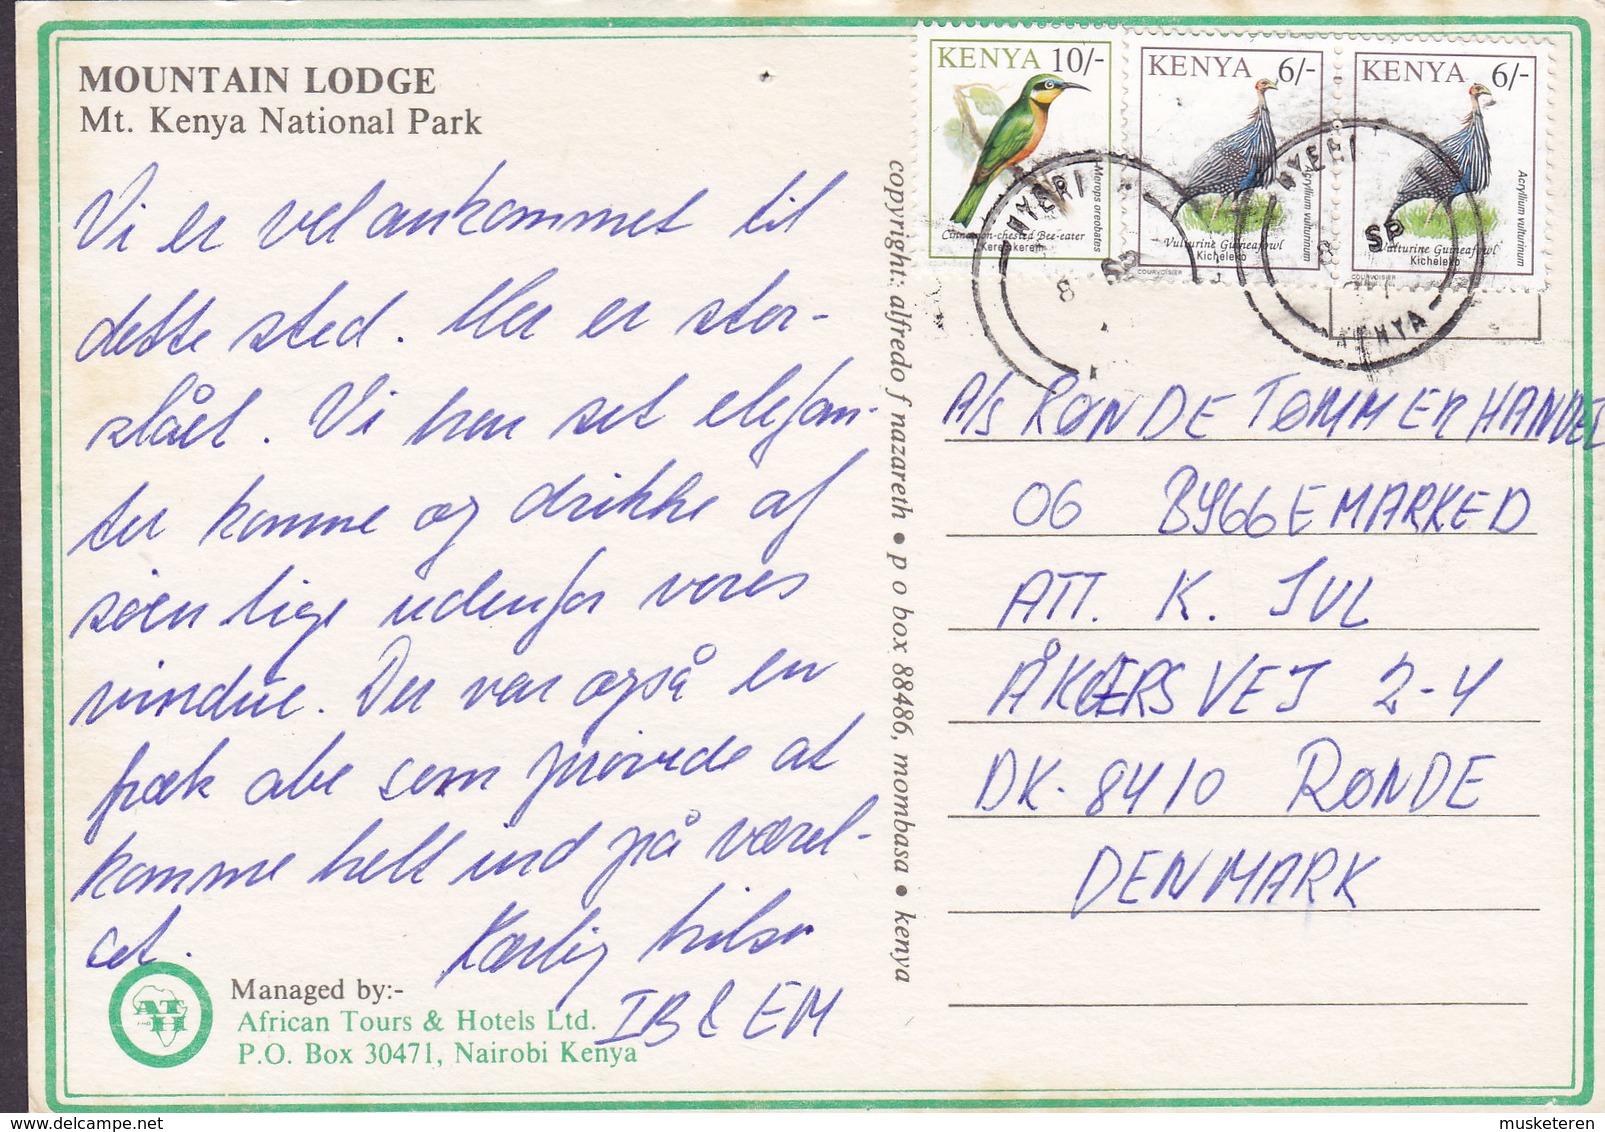 MOUNTAIN LODGE
Mt. Kenya National Park
Vi er vel ankommet til
dette sted. Her er stor-
slået. Vi har set elefan-
ter komme og drikke af
søen lige udenfor vores
vindue. Der var også en
fræk abe som prøvede at
komme helt ind på værel-
set.
Kærlig hilsen
IB & EM
Managed by:-
African Tours & Hotels Ltd.
P.O. Box 30471, Nairobi Kenya
AT
H
copyright: alfredo f nazareth • p o box 88486, mombasa • kenya
KENYA 10/-
Merops oreobates
Cinnamon-chested Bee-eater
Keremkerem
KENYA 6/-
Acryllium vulturinum
Vulturine Guineafowl
Kicheleko
COURVOISIER
KENYA 6/-
Acryllium vulturinum
Vulturine Guineafowl
Kicheleko
COURVOISIER
NYERI
8 SP
NYERI
8 SP
KENYA
A/S RØNDE TØMMERHANDEL
OG BYGGEMARKED
ATT. K. JUL
ÅKJÆRSVEJ 2-4
DK-8410 RØNDE
DENMARK
musketeren